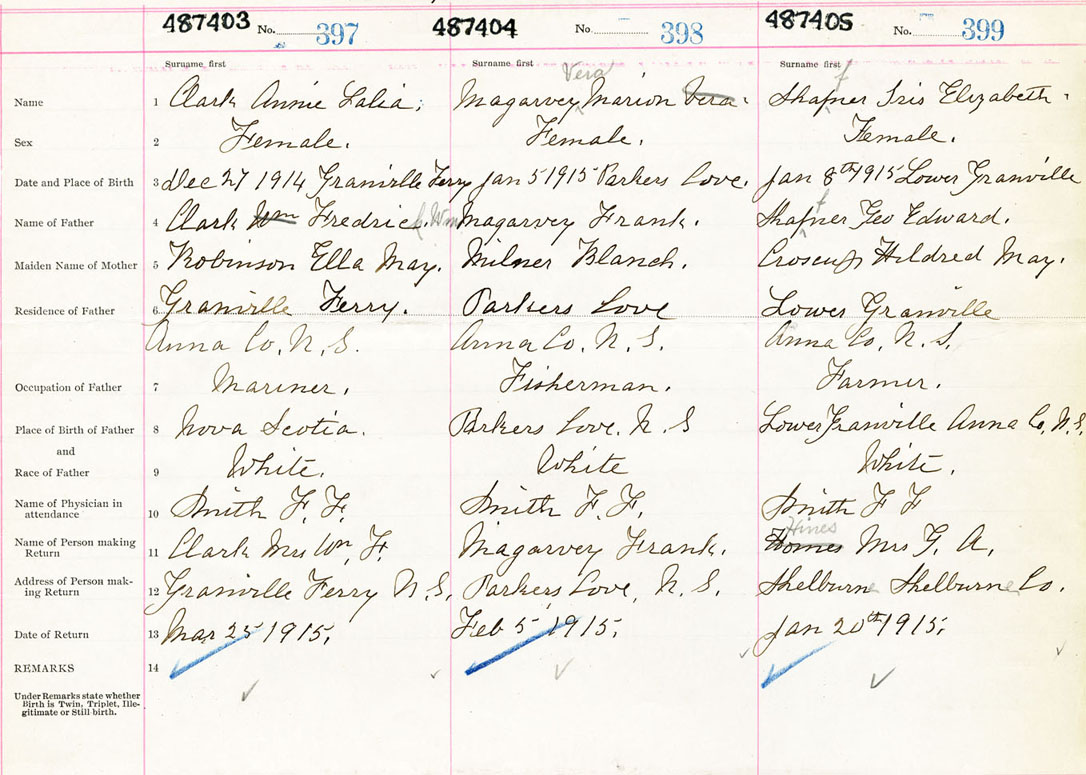 487403 No. 397 487404 No. 398 487405 No. 399
Surname first Surname first Surname first
Vera f
Name 1 Clark Annie Lalia. Magarvey Marion Vera. Shafner Iris Elizabeth.
Sex 2 Female. Female. Female.
Date and Place of Birth 3 Dec 27 1914 Granville Ferry Jan 5 1915 Parkers Cove. Jan 8th 1915 Lower Granville
Name of Father 4 Clark Wm Fredric Wm Magarvey Frank. Shafner Geo Edward.
Maiden Name of Mother 5 Robinson Ella May. Milner Blanch. Croscup Hildred May.
Residence of Father 6 Granville Ferry. Parkers Cove Lower Granville
Anna Co. N. S. Anna Co. N. S. Anna Co. N. S.
Occupation of Father 7 Mariner. Fisherman. Farmer.
Place of Birth of Father 8 Nova Scotia. Parkers Cove. N. S Lower Granville Anna Co. N. S.
and
Race of Father 9 White. White White.
Name of Physician in
attendance 10 Smith F. F. Smith F. F. Smith F F
Hines
Name of Person making
Return 11 Clark Mrs Wm F. Magarvey Frank. Homes Mrs G. A.
Address of Person mak-
ing Return 12 Granville Ferry N. S. Parkers Cove, N. S. Shelburne Shelburne Co.
Date of Return 13 Mar 25 1915. Feb 5 1915. Jan 20th 1915.
REMARKS 14
Under Remarks state whether
Birth is Twin, Triplet, Ille-
gitimate or Still-birth.